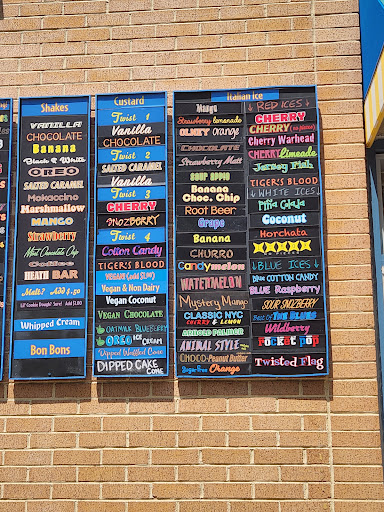 Shakes
VANILLA
CHOCOLATE
Banana
Black & White
OREO
SALTED CARAMEL
Mokaccino
Marshmallow
MANGO
Strawberry
Mint Chocolate Chip
Cookie
HEATH BAR
Malt? Add $.50
Whipped Cream
Bon Bons
Custard
Twist 1
Vanilla
CHOCOLATE
Twist 2
SALTED CARAMEL
Vanilla
Twist 3
CHERRY
Twist 4
Cotton Candy
TIGER'S BLOOD
VEGAN (add $1.00)
Vegan & Non Dairy
Vegan Coconut
VEGAN CHOCOLATE
OATMILK BLUEBERRY
OREO ICE CREAM
Dipped Waffled Cone
DIPPED CAKE CONE
Italian Ice
Mango
Strawberry lemonade
OLNEY Orange
CHOCOLATE
Strawberry Mett
SOUR APPLE
Banana Choc. Chip
Root Beer
Grape
Banana
CHURRO
Candymelon
WATERMELON
Mystery Mango
CLASSIC NYC
CHERRY & LEMON
ARNOLD PALMER
ANIMAL STYLE
CHOCO-Peanut Butter
Sugar Free Orange
↓ RED ICES ↓
CHERRY
CHERRY (no pieces)
Cherry Warhead
CHERRY Limeade
Jersey Mish
TIGER'S BLOOD
↓ WHITE ICES ↓
Piña Colada
Coconut
Horchata
↓ BLUE ICES ↓
Blue COTTON CANDY
BLUE Raspberry
Wildberry
ROCKET POP
Twisted Flag